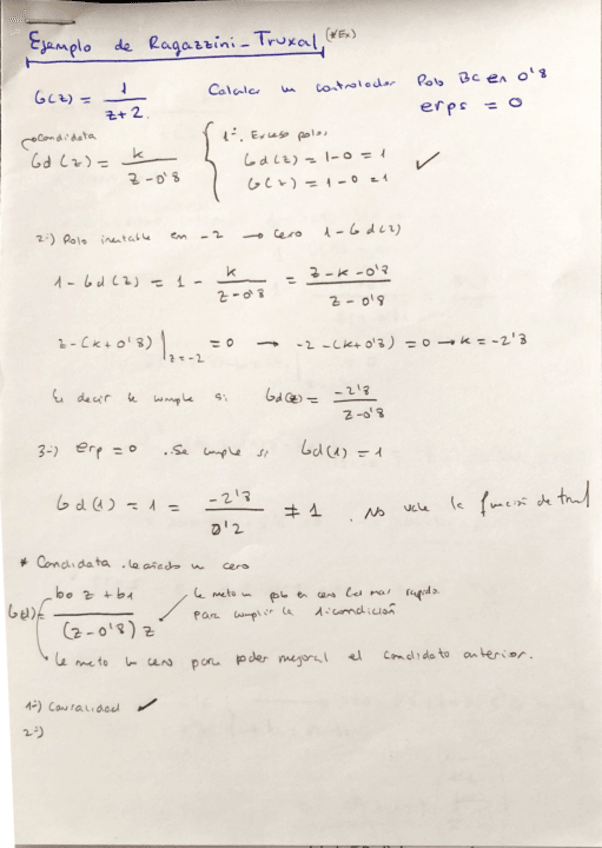 Ejemplo de Ragazzini-Truxal (*Ex)
G(z) = 1 / (z+2) Calcular un controlador Polo BC en 0'8
erps = 0
Candidata
Gd(z) = k / (z-0'8)
1º. Exceso polos
Gd(z) = 1-0 = 1 ✓
G(z) = 1-0 = 1
2º) Polo inestable en -2 → cero 1-Gd(z)
1-Gd(z) = 1 - k / (z-0'8) = (z-k-0'8) / (z-0'8)
z-(k+0'8) |z=-2 = 0 → -2-(k+0'8) = 0 → k = -2'8
Es decir se cumple si Gd(z) = -2'8 / (z-0'8)
3º) erp = 0 . Se cumple si Gd(1) = 1
Gd(1) = 1 = -2'8 / 0'2 ≠ 1 . No vale la función de
* Candidata un cero
Gd(z) = (b0 z + b1) / ((z-0'8) z)
le meto un polo en cero (el mas rapido
para cumplir la 1ª condición
le meto un cero para poder mejorar el candidato anterior.
1º) Causalidad ✓
2º)